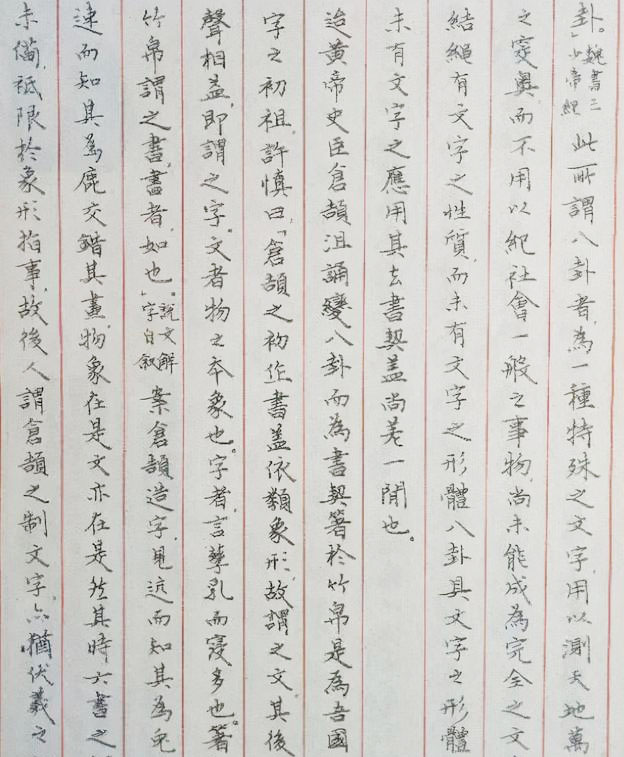 卦。」魏書三少帝紀此所謂八卦者，為一種特殊之文字，用以測天地萬
之窔奧而不用以紀社會一般之事物，尚未能成為完全之文
結繩有文字之性質，而未有文字之形體八卦具文字之形體
未有文字之應用其去書契蓋尚差一間也。
迨黃帝史臣倉頡沮誦變八卦而為書契箸於竹帛是為吾國
字之初祖。許慎曰，「倉頡之初作書蓋依類象形，故謂之文。其後
聲相益，即謂之字。文者物之本象也。字者，言孳乳而寖多也。箸
竹帛謂之書，書者，如也。」說文解字自敘案倉頡造字，見迒而知其為兔
速而知其為鹿交錯其畫，物象在是文亦在是然其時六書之
未備，祇限於象形指事，故後人謂倉頡之制文字，亦猶伏羲之